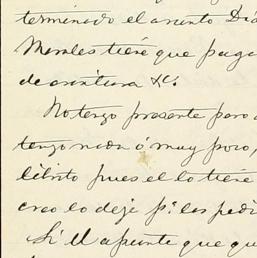 terminado el asunto Diá
Morales tiene que paga
de escritura &c.
No tengo presente pero c
tengo nada ó muy poco,
librito pues el lo tiene
creo lo dejé pr. las pedi
Si U apunte que qu